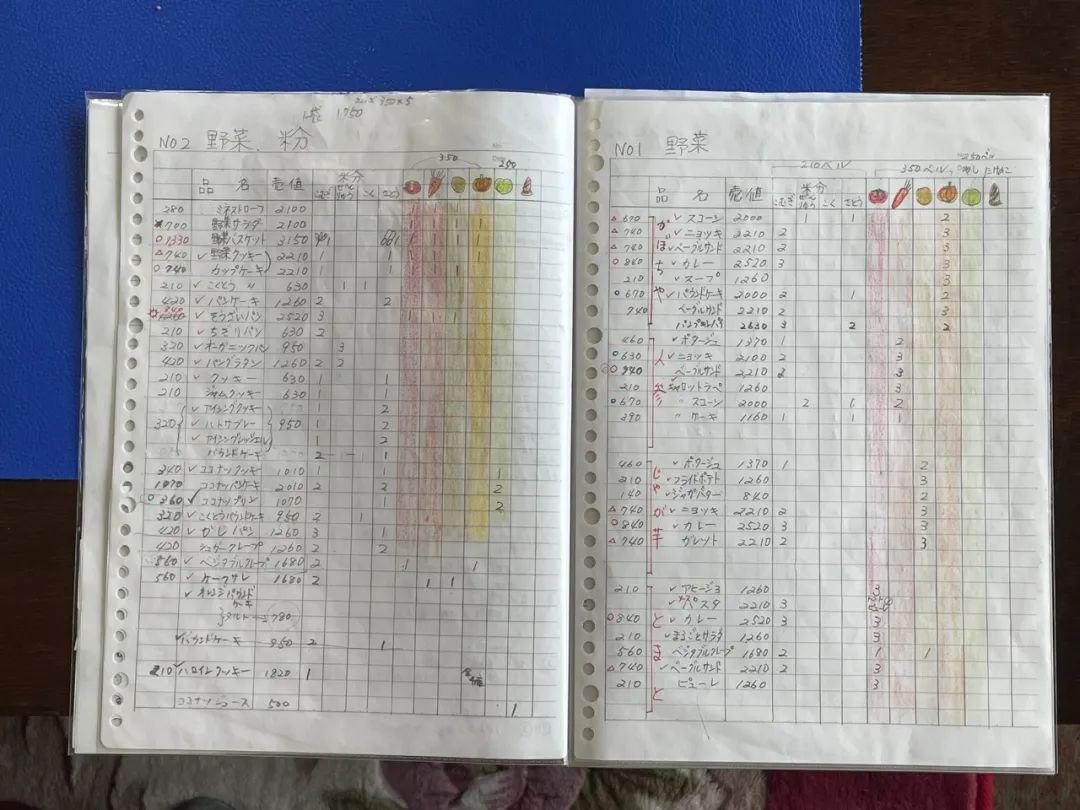 1袋 1750
350×5
No2 野菜、粉
350 250
品名 売値 粉分 こむぎ こく さとう
280 ミネストローフ 2100
700 野菜サラダ 2100 1 1 1 1
1330 野菜バスケット 3150
△740 ✓野菜クッキー 2210 1 1 1 1 1 1
○740 カップケーキ 2210 1 1 1 1 1
210 ✓こくとう 〃 630 1 1
420 ✓パンケーキ 1260 2 2
✓そうざいパン 2520 3 1 1
210 ✓ちぎりパン 630 2
320 ✓オーガニックパン 950 3
420 ✓パングラタン 1260 2 2
210 ✓クッキー 630 1 1
210 ジャムクッキー 630 1 1
✓アイシングクッキー 1 2
320 ✓ハトサブレー 950 1 2
✓アイシングプレッツェル 1 2
パウンドケーキ 2 1
340 ✓ココナツクッキー 1010 1 1 1
1070 ココナツパンケーキ 2010 2 2 2
○360 ✓ココナップリン 1070 2
320 ✓こくとうパウンドケーキ 950 2 1
420 ✓かじパン 1260 3 1
420 シュガークレープ 1260 2 2
560 ✓ベジタブルクレープ 1680 2 1 1
560 ✓ケークサレ 1680 2 1 1
✓オレンジパウンドケーキ
タルト 780
✓パウンドケーキ 950 2 1
210 ✓ハロインクッキー 1820 1
ココナツジュース 500 1
No1 野菜
210ベル 350ベル 250ベル
品名 売値 粉分 こむぎ こく さとう
かぼちゃ
△670 ✓スコーン 2000 1 1 2
△740 ✓ニョッキ 2210 2 3
△740 ✓ベーグルサンド 2210 2 3
○840 ✓カレー 2520 3 3
210 ✓スープ 1260 3
○670 ✓パウンドケーキ 2000 2 1 2
740 ベーグルサンド 2210 2 3
2630 3 2 2
人参
460 ✓ポタージュ 1370 1 2
○630 ✓ニョッキ 2100 2 3
○740 ベーグルサンド 2210 2 3
210 キャロットラペ 1260 3
○670 〃スコーン 2000 2 1 2
390 〃ケーキ 1160 1 1 1
じゃが芋
460 ✓ポタージュ 1370 1 2
210 ✓フライドポテト 1260 3
140 ✓ジャガバター 840 2
△740 ✓ニョッキ 2210 2 3
○840 ✓カレー 2520 3 3
△740 ガレット 2210 2 3
とまと
210 ✓アヒージョ 1260 3
✓パスタ 2210 3
○840 ✓カレー 2520 3 3
210 ✓まるごとサラダ 1260 3
560 ベジタブルクレープ 1680 2 1 1
△740 ✓ベーグルサンド 2210 2 3
210 ピューレ 1260 3